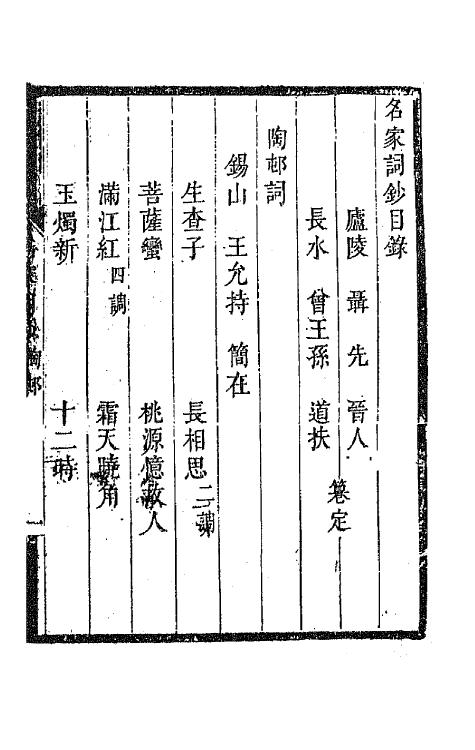 名家詞鈔目錄
廬陵 聶先 晉人
長水 曾王孫 道扶
篹定
陶邨詞
錫山 王允持 簡在
生查子 長相思二調
菩薩蠻 桃源憶故人
滿江紅四調 霜天曉角
玉燭新 十二時
陶邨
一